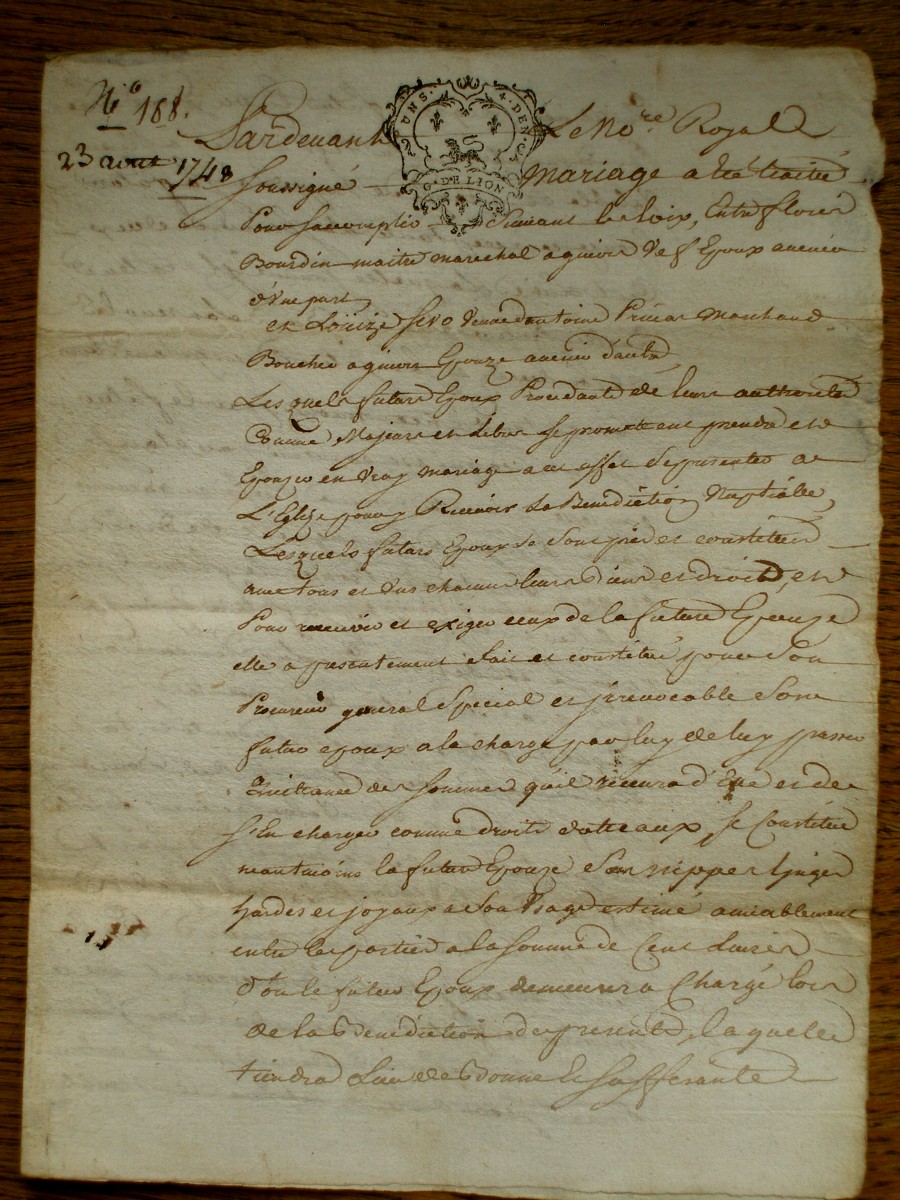 N.o 188.
23 aout 1748
UNS. 4. DEN.
G. DE LION
Pardevant Le No.re Royal
Soussigné mariage a été traitté
Pour Saccomplir Suivant les loix, Entre
Bourdin maitre marechal a Epoux avenir
d'Une part,
et Loüize Veuve d'antoine marchand
Boucher a Epouze avenir d'autre
Lesquels futurs Epoux Procedants de leurs authorités
Comme Majeurs et Libres se promettent prendre et
Epouzer en vray mariage a cet effet se presenter a
L'Eglize pour y Recevoir la Benediction Nuptialle,
Lesquels futurs Epoux se sont et constitués
avec tous et Uns chacuns leurs Biens et droits, et
Pour recevoir et exiger ceux de la future Epouze
elle a presentement fait et constitué pour Son
Procureur general Special et jrrevocable Son
futur epoux a la charge par luy de passer
Quittance des Sommes qu'il recevra d'Elle et de
S'En charger comme droits dotteaux, Se Constitue
neantmoins la future Epouze Ses nippes linges
hardes et joyaux a Son Usage estimé amiablement
entre les parties a la Somme de Cent Livres
d'ou le futur Epoux demeurera Chargé lors
de la Benediction des presentes, laquelle
tiendra Lieu de Bonne et Suffisante